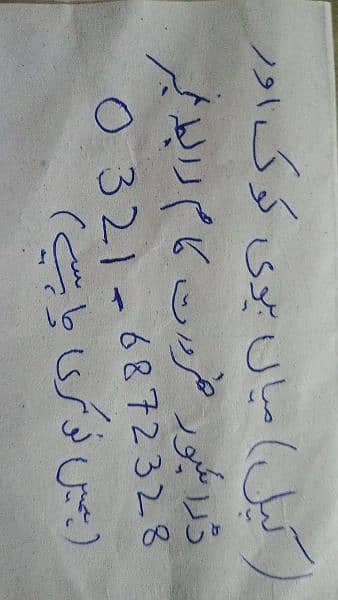 (کپل) میاں بیوی کوک اور
ڈرائیور ضرورت کام رابطہ نمبر
0321-6872328
(ہمیں نوکری چاہیے)